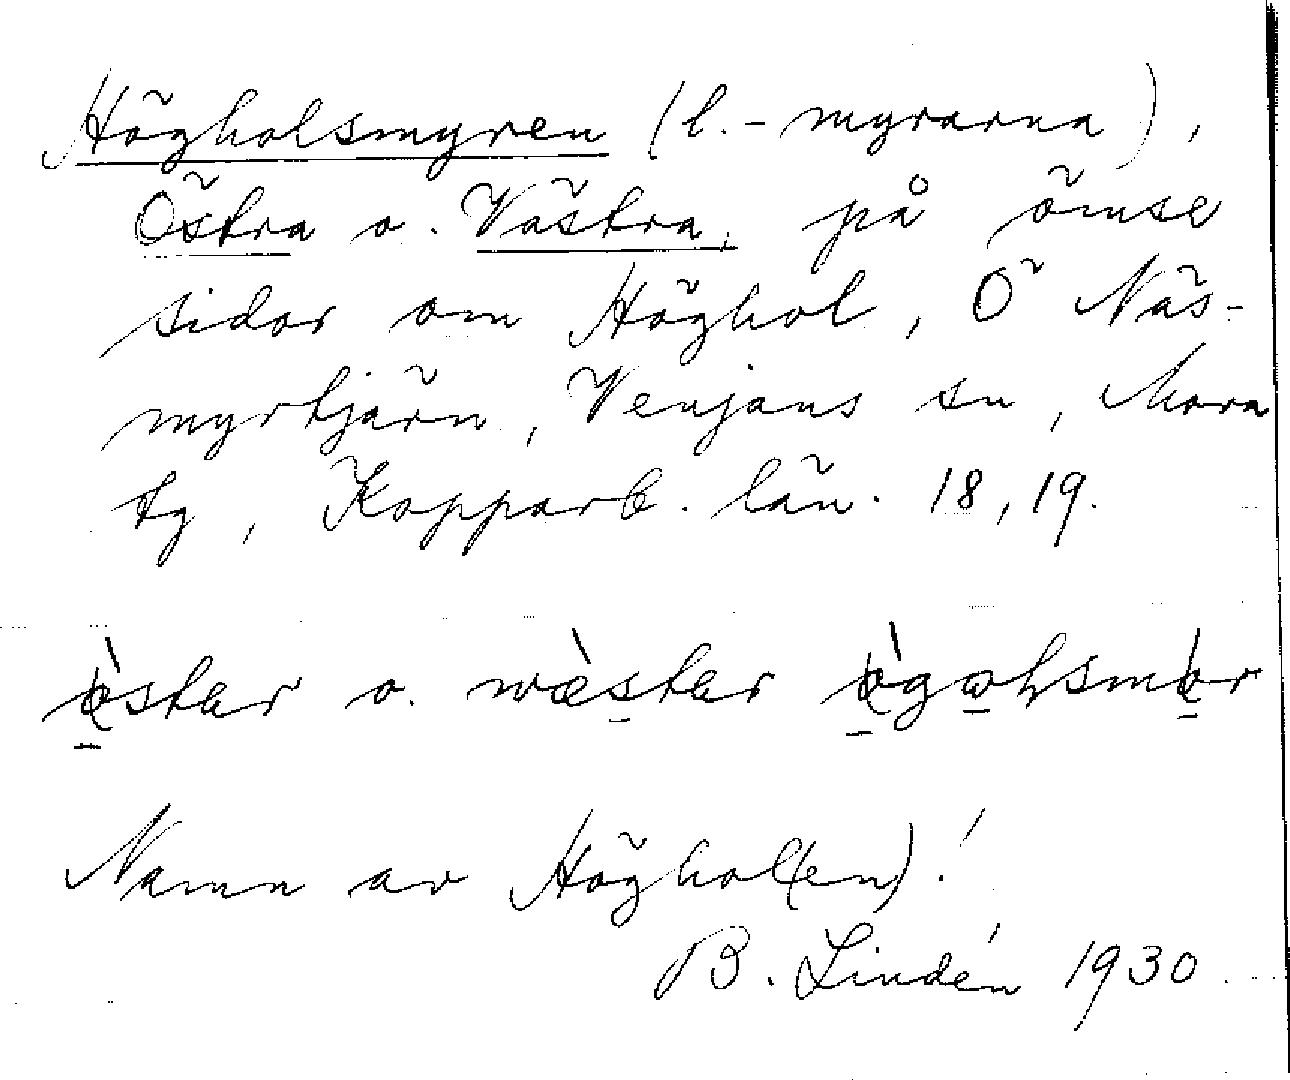 Högholsmyren (l. - myrarna),
Östra o. Västra, på ömse
sidor om Höghol, Ö Näs-
myrtjärn, Venjans sn, Mora
tg, Kopparb. län. 18, 19.
o. wæ̀ster
Namn av Höghol(en)!
B. Lindén 1930